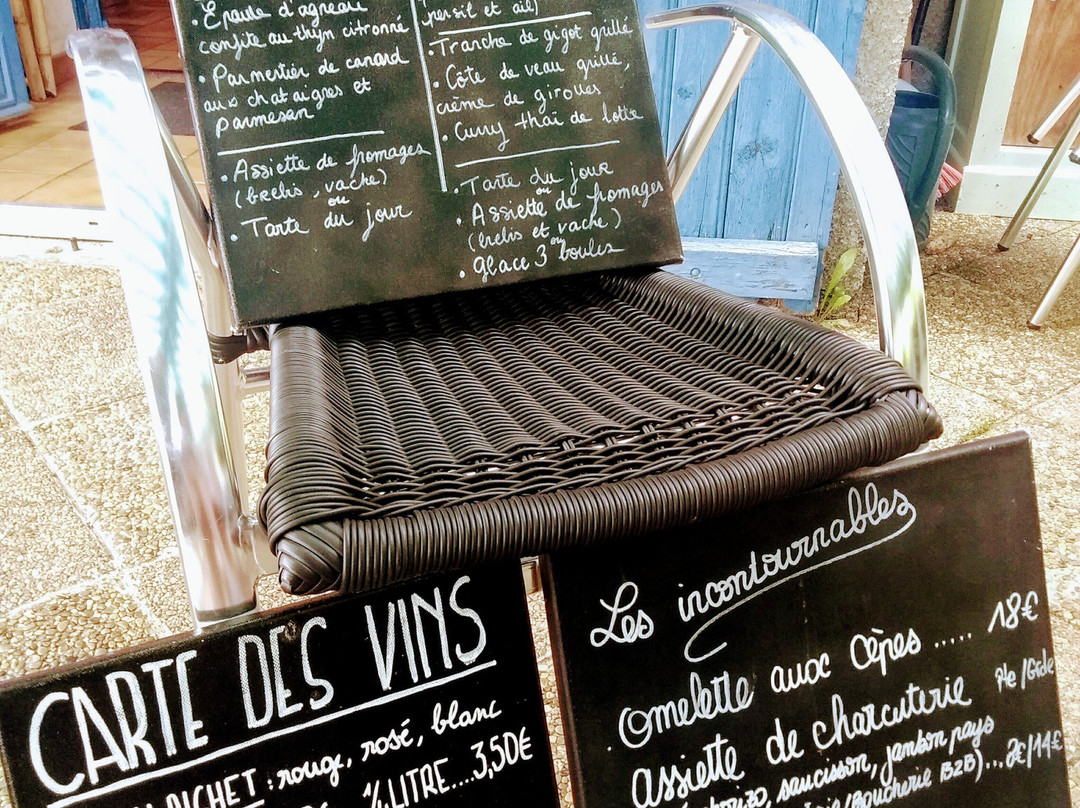 • Epaule d'agneau
confite au thym citronné
• Parmentier de canard
aux chataignes et
parmesan
Assiette de fromages
(brebis, vache)
ou
• Tarte du jour
(persil et ail)
• Tranche de gigot grillé
• Côte de veau grillé,
crème de girolles
• Curry thaï de lotte
• Tarte du jour
ou
• Assiette de fromages
(brebis et vache)
ou
• Glace 3 boules
CARTE DES VINS
PICHET : rouge, rosé, blanc
1/4 LITRE...3,50€
Les incontournables
• Omelette aux Cèpes ..... 18€
Pte/Gde
assiette de charcuterie
chorizo, saucisson, jambon pays
Boucherie B2B)... /14€